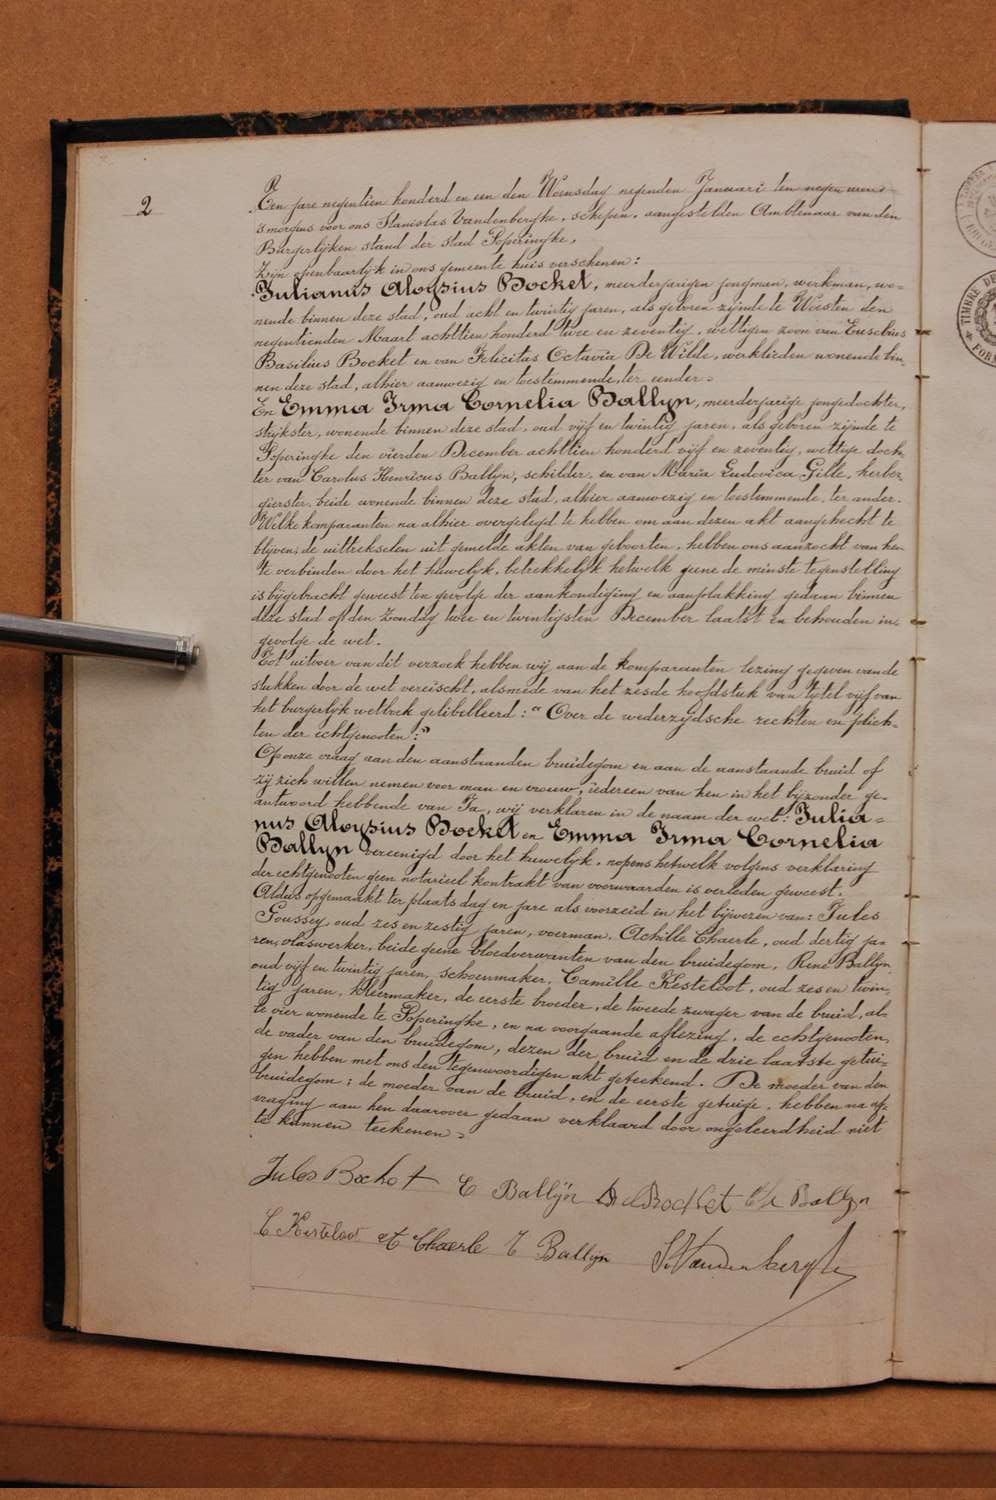 2
Ten jare negentien honderd en een den Woensdag negenden Januari ten negen uren
'smorgens voor ons Stanislas Vandenberghe, schepen, aangestelden Ambtenaar van den
Burgerlijken stand der stad Poperinghe,
zijn openbaarlijk in ons gemeente huis verschenen:
Julianus Aloysius Bocket, meerderjarigen jongman, werkman, wo=
nende binnen deze stad, oud acht en twintig jaren, als geboren zijnde te Westen den
negentienden Maart achttien honderd twee en zeventig, wettigen zoon van Eusebius
Basilius Bocket en van Felicitas Octavia De Wilde, werklieden wonende bin=
nen deze stad, alhier aanwezig en toestemmende, ter eender =
En Emma Irma Cornelia Ballyn, meerderjarige jongedochter,
strijkster, wonende binnen deze stad, oud vijf en twintig jaren, als geboren zijnde te
Poperinghe den vierden December achttien honderd vijf en zeventig, wettige doch=
ter van Carolus Henricus Ballyn, schilder, en van Maria Ludovica Gille, herber=
gierster, beide wonende binnen deze stad, alhier aanwezig en toestemmende, ter ander.
Welke komparanten na alhier overgelegd te hebben om aan dezen akt aangehecht te
blijven, de uittrekselen uit gemelde akten van geboorten, hebben ons aanzocht van hen
te verbinden door het huwelijk, betrekkelijk hetwelk geene de minste tegenstelling
is bijgebracht geweest ten gevolge der aankondiging en aanplakking gedaan binnen
deze stad op den Zondag twee en twintigsten December laatst en behouden in
gevolge de wet.
Tot uitvoer van dit verzoek hebben wij aan de komparanten lezing gegeven van de
stukken door de wet vereischt, alsmede van het zesde hoofdstuk van tijtel vijf van
het burgerlijk wetboek getibelleerd: "Over de wederzijdsche rechten en plich=
ten der echtgenooten:"
Op onze vraag aan den aanstaanden bruidegom en aan de aanstaande bruid of
zij zich willen nemen voor man en vrouw, iedereen van hen in het bijzonder ge=
antwoord hebbende van Ja, wij verklaren in de naam der wet: Julia=
nus Aloysius Bocket en Emma Irma Cornelia
Ballyn vereenigd door het huwelijk, nopens hetwelk volgens verklaring
der echtgenooten geen notarieel kontrakt van voorwaarden is verleden geweest.
Aldus opgemaakt ter plaats dag en jare als voorzeid in het bijwezen van: Jules
Goussey, oud zes en zestig jaren, voerman, Achille Chaerle, oud dertig ja=
ren, vlaswerker, beide geene bloedverwanten van den bruidegom, René Ballyn,
oud vijf en twintig jaren, schoenmaker, Camille Kesteloot, oud zes en twin=
tig jaren, kleermaker, de eerste broeder, de tweede zwager van de bruid, al=
te vier wonende te Poperinghe, en na voorgaande aflezing, de echtgenooten,
de vader van den bruidegom, dezen der bruid en de drie laatste getui=
gen hebben met ons den tegenwoordigen akt geteekend. De moeder van den
bruidegom; de moeder van de bruid, en de eerste getuige, hebben na af=
vraging aan hen daarover gedaan verklaard door ongeleerdheid niet
te kunnen teekenen =
Jules Bocket E Ballÿn Bocket Ballyn
C Kesteloot Chaerle Ballyn St Vandenberghe
TIMBRE DE